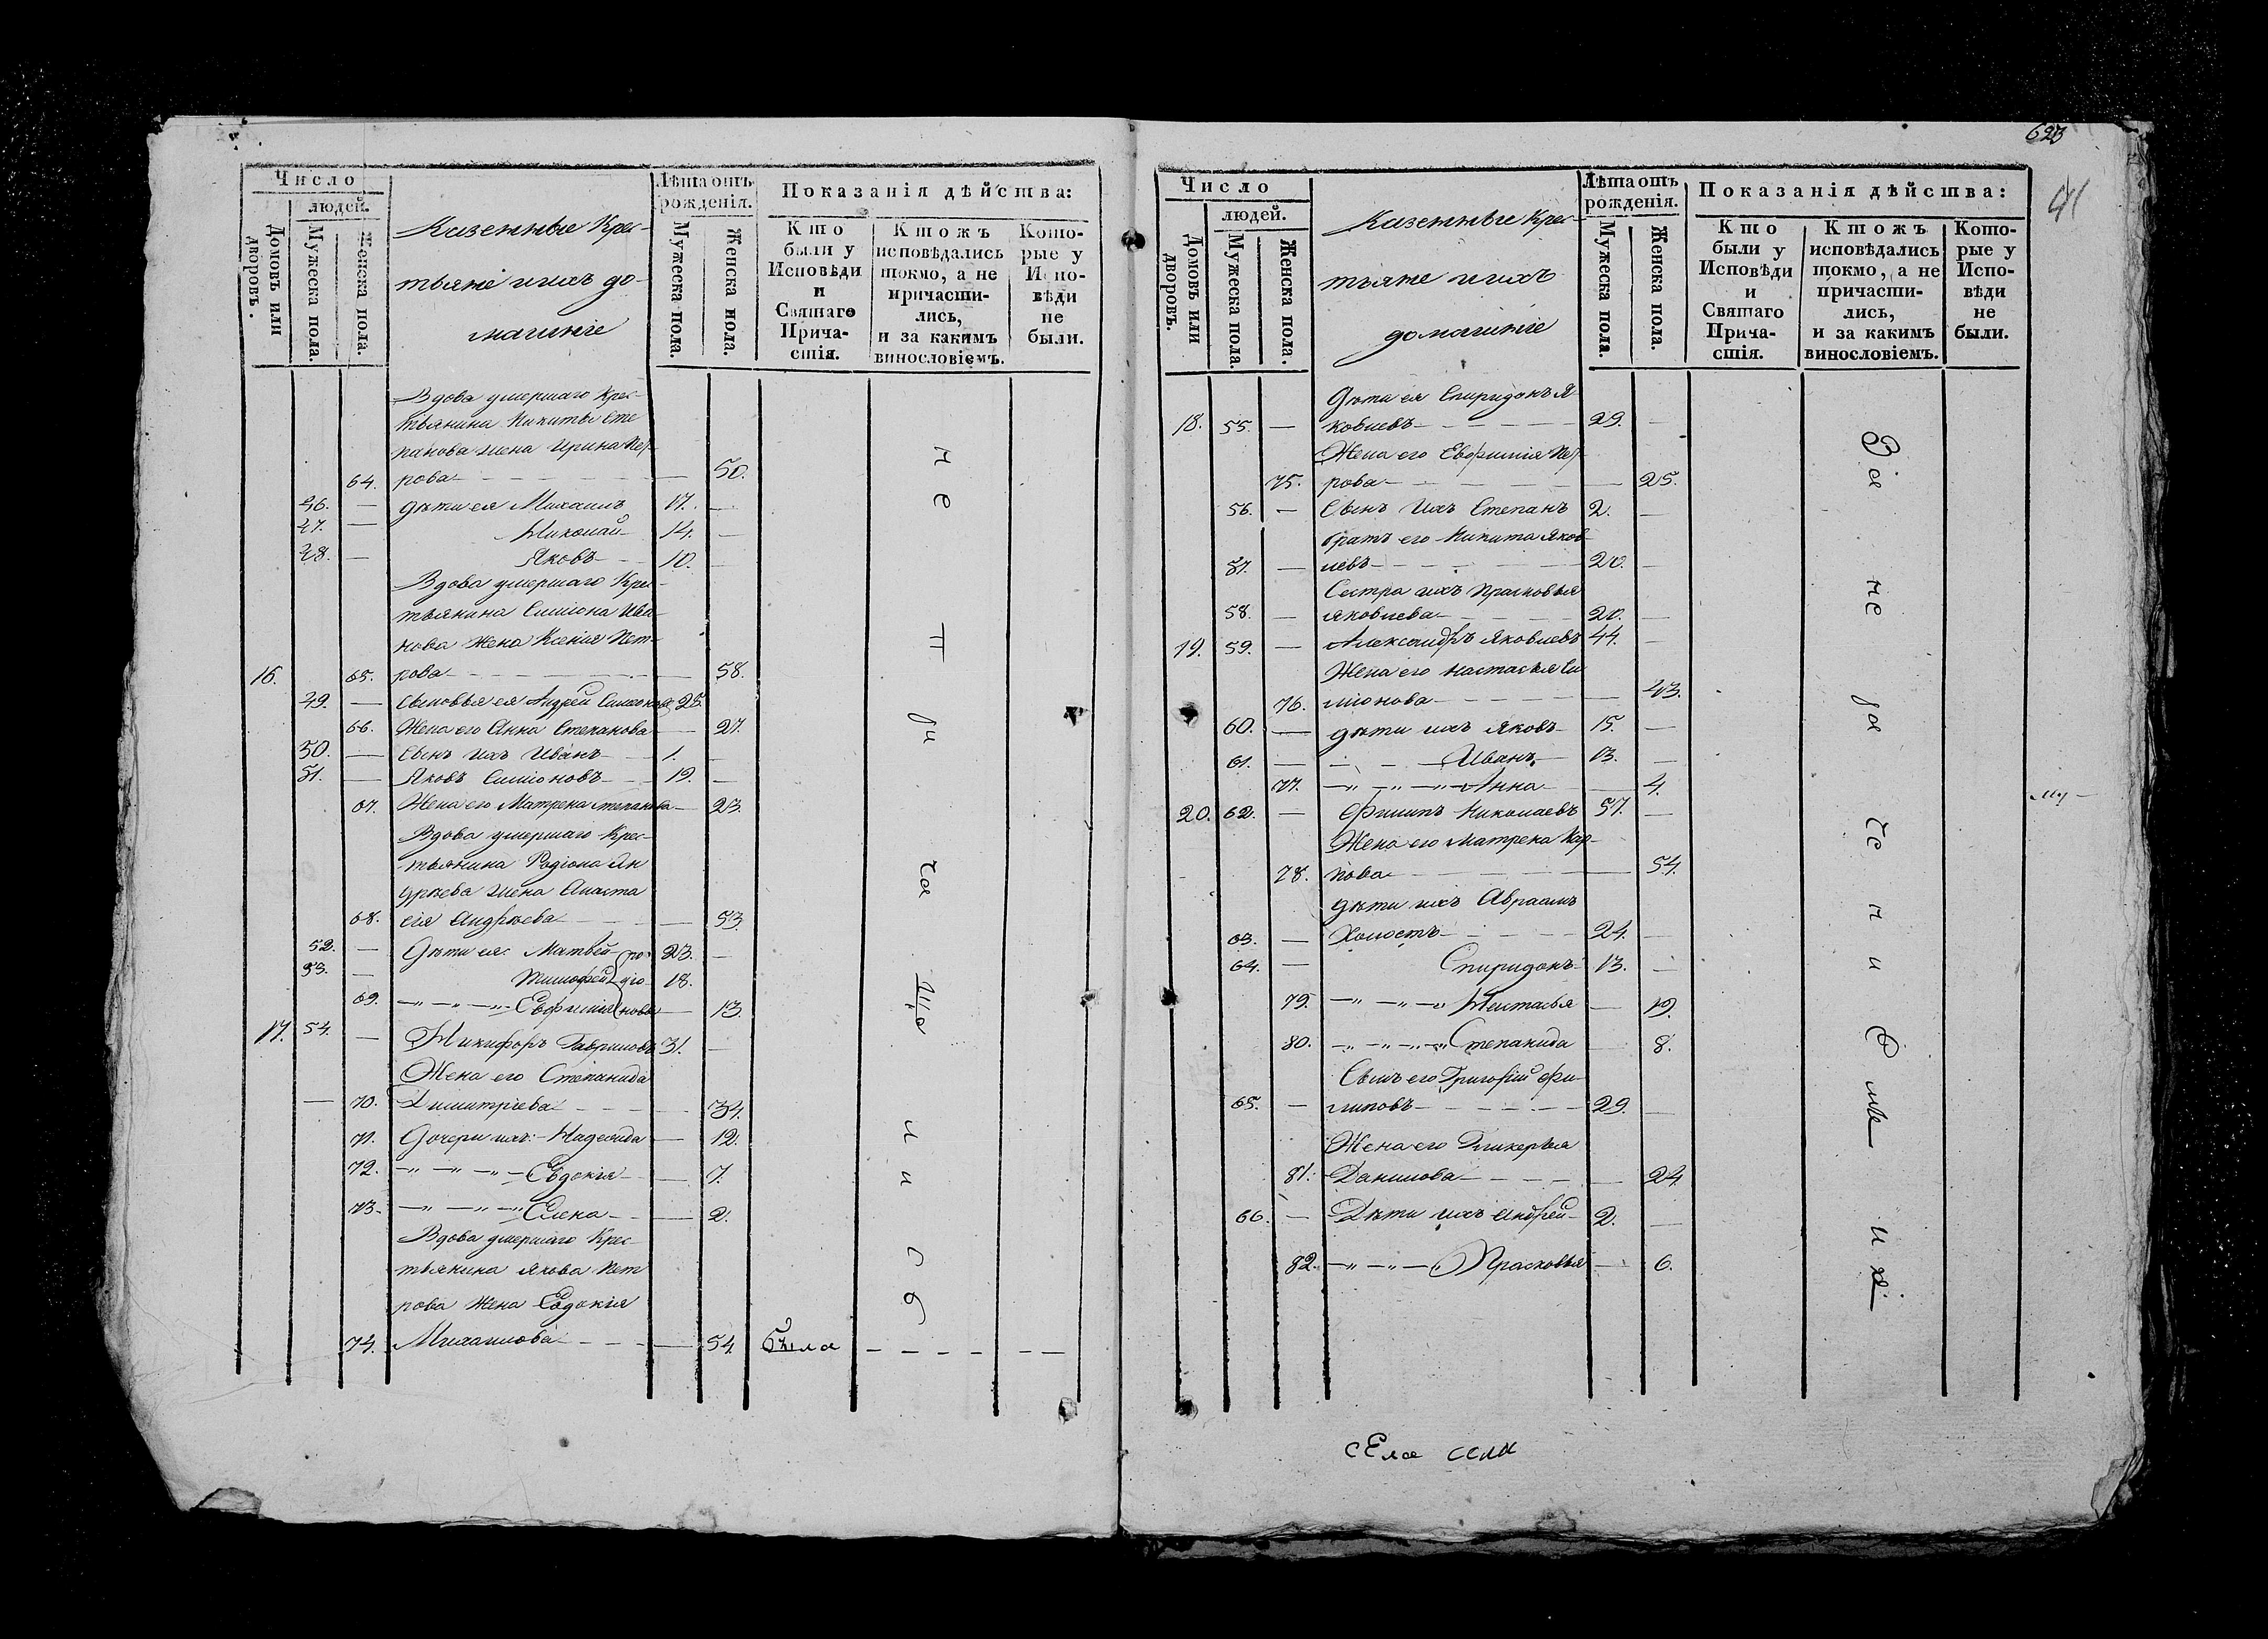 Число
людей.
Домовъ или дворовъ.
Мужеска пола.
Женска пола.
Казенные Крес-
тьяне и ихъ до-
машніе
Лѣта отъ
рожденія.
Мужеска пола.
Женска пола.
Показанія дѣйства:
Кто
были у
Исповѣди
и
Святаго
Прича-
стія.
Ктожъ
исповѣдались
токмо, а не
причасти-
лись,
и за какимъ
винословіемъ.
Кото-
рые у
Испо-
вѣди
не
были.
Вдова умершаго Крес-
тьянина Никиты Сте
панова жена Ирина Пет-
64. рова — 50.
46. — дѣти ея Михаилъ 17. —
47. — Николай 14. —
48. — Яковъ 10. —
Вдова умершаго Крес-
тьянина Симіона Ива-
нова Жена Ксенія Пет-
16. 65. рова — 58.
49. — Сыновья ея Андрей Симіоновъ 25.
66. Жена его Анна Степанова — 27.
50. — Сынъ ихъ Иванъ 1. —
51. — Яковъ Симіоновъ 19. —
67. Жена его Матрена Степанова — 23.
Вдова умершаго Крес-
тьянина Родіона Ан
дрѣева жена Анаста
68. сія Андрѣева — 53.
52. — Дѣти ея Матвей ро- 23. —
53. — Тимофей діо- 18.
69. —„—„—„ Евфимія новы — 13.
17. 54. — Никифоръ Гавриловъ 31. —
Жена его Степанида
— 70. Димитріева — 34.
71. Дочери ихъ: — Надежда — 12.
72. —„—„—„— Евдокія — 7.
73. —„—„—„ Елена — 2.
Вдова умершаго Крес-
тьянина Якова Пет
рова Жена Евдокія
74. Михаилова — 54. была — — — — — —
не причащались
623
41
Число
людей.
Домовъ или дворовъ.
Мужеска пола.
Женска пола.
Казенные Крес-
тьяне и ихъ
домашніе
Лѣта отъ
рожденія.
Мужеска пола.
Женска пола.
Показанія дѣйства:
Кто
были у
Исповѣди
и
Святаго
Прича-
стія.
Ктожъ
исповѣдались
токмо, а не
причасти-
лись,
и за какимъ
винословіемъ.
Кото-
рые у
Испо-
вѣди
не
были.
Дѣти ея Спиридонъ Я
18. 55. — ковлевъ 29. —
Жена его Евфимія Пет-
75. рова — 25.
56. — Сынъ Ихъ Степанъ 2. —
братъ его Никита Яков-
57. — левъ 20. —
Сестра ихъ Прасковья
58. — Яковлева 20. —
19. 59. — Александръ Яковлевъ 44. —
Жена его Настасья Си
76. міонова — 43.
60. — дѣти ихъ Яковъ 15. —
61. — Иванъ 13. —
77. —„—„—„ Анна — 4.
20. 62. — Филипъ Николаевъ 57. —
Жена его Матрена Кар-
78. пова — 54.
дѣти ихъ Авраамъ
63. — Холостъ 24. —
64. — Спиридонъ 13. —
79. —„—„—„ Настасья — 19.
80. —„—„—„ Степанида — 8.
Сынъ его Григорій Фи-
65. — липовъ 29. —
Жена его Гликерья
81. Данилова — 24.
66. — Дѣти ихъ Андрей 2. —
82. —„—„— Прасковья — 6.
За не
му —
села сел